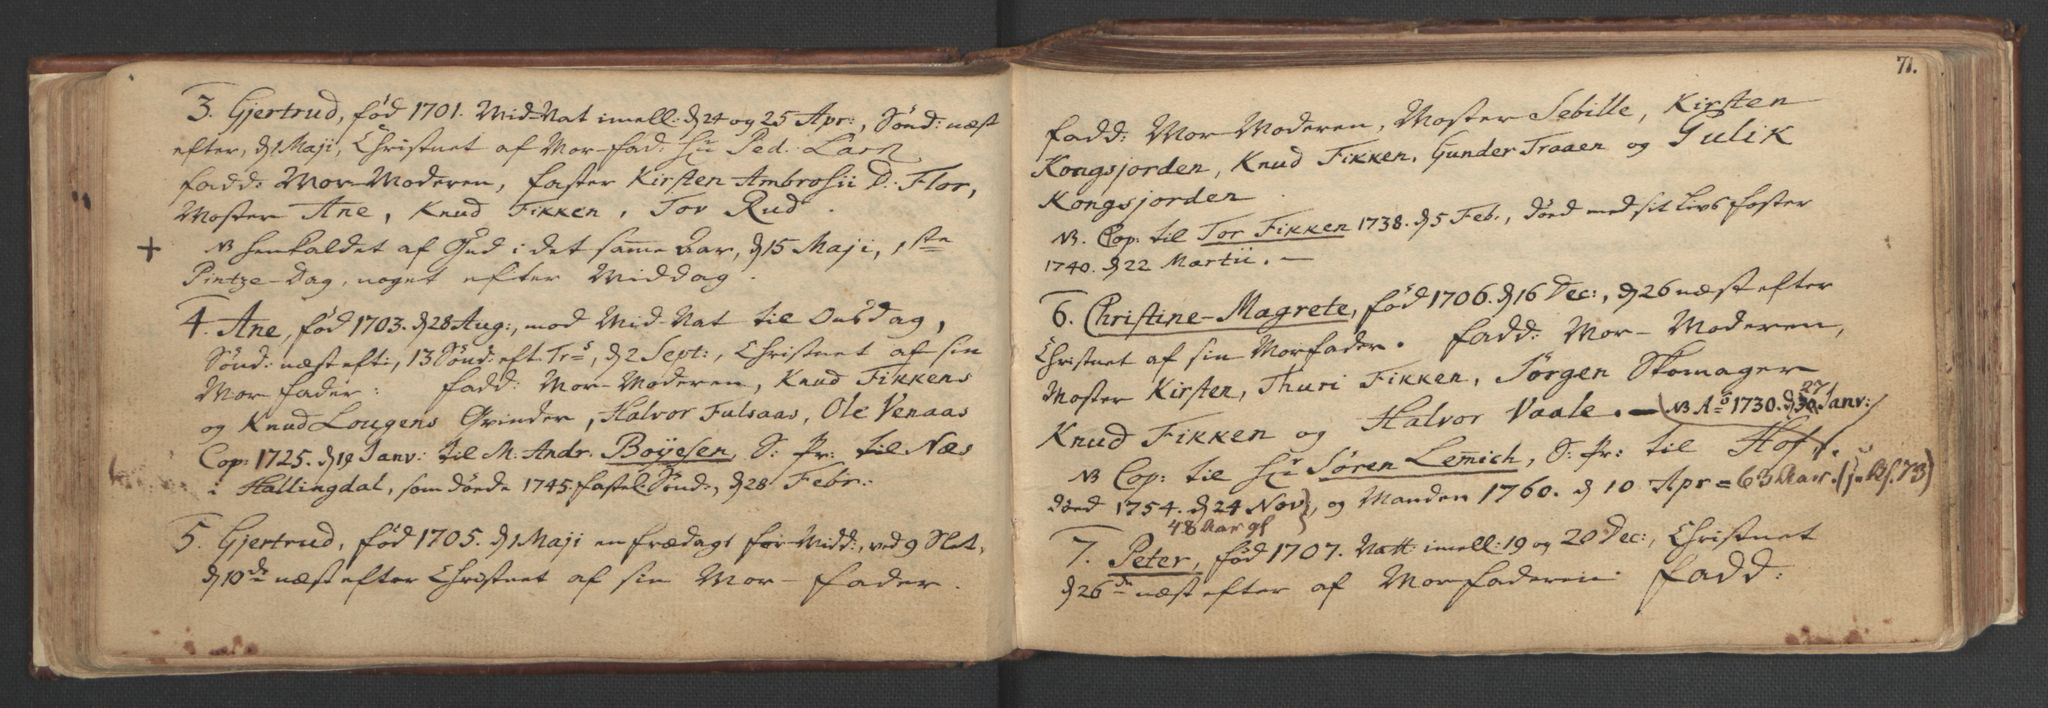 3. Gjertrud, fød 1701. Mid-Nat imell: d 24 og 25 Apr:, Sønd: næst
efter, d 1 Maji, Christnet af Mor-fad Hr Ped. Larn
fadd: Mor-Moderen, faster Kirsten Ambrosii D. Flor,
Moster Ane, Knud Fikken, Tov Rud.
+ NB henkaldet af Gud i det samme Aar, d 15 Maji, 1ste
Pintze-Dag, noget efter Middag.
4. Ane, fød 1703. d 28 Aug:, mod Mid-Nat til Onsdag,
Sønd: næst eft:, 13 Sønd: eft. Trs, d 2 Sept:, Christnet af sin
Mor fader: fadd: Mor-Moderen, Knud Fikkens
og Knud Lougens Qvinder, Halvor Fulsaas, Ole Venaas
Cop: 1725. d 19 Janv: til M. Andr. Boyesen, S: Pr: til Næs
i Hallingdal, som døede 1745. fastel: Sønd:, d 28 Febr:
5. Gjertrud, fød 1705. d 1 Maji en fredags for-Midd:, ved 9 Slet,
d 10de næst efter Christnet af sin Mor-fader.
71.
fadd: Mor-Moderen, Moster Sebille, Kirsten
Kongsjorden, Knud Fikken, Gunder Traaen og Gulik
Kongsjorden
NB. Cop: til Tor Fikken 1738. d 5 Feb., døed med sit livs foster
1740. d 22 Martii. —
6. Christine-Magrete, fød 1706. d 16 Dec:, d 26 næst efter
Christnet af sin Morfader. fadd: Mor-Moderen,
Moster Kirsten, Thuri Fikken, Jørgen Skomager
27
Knud Fikken og Halvor Vaale. — (NB Ao 1730. d 30 Janv:
NB Cop: til Hr Søren Lemich, S: Pr: til Hof.
døed 1754. d 24 Nov:, og Manden 1760. d 10 Apr = 63 Aar. (J. Bl. 73)
48 Aar gl
7. Peter, fød 1707. Natt: imell: 19 og 20 Dec:, Christnet
d 26de næst efter af Morfaderen. fadd: